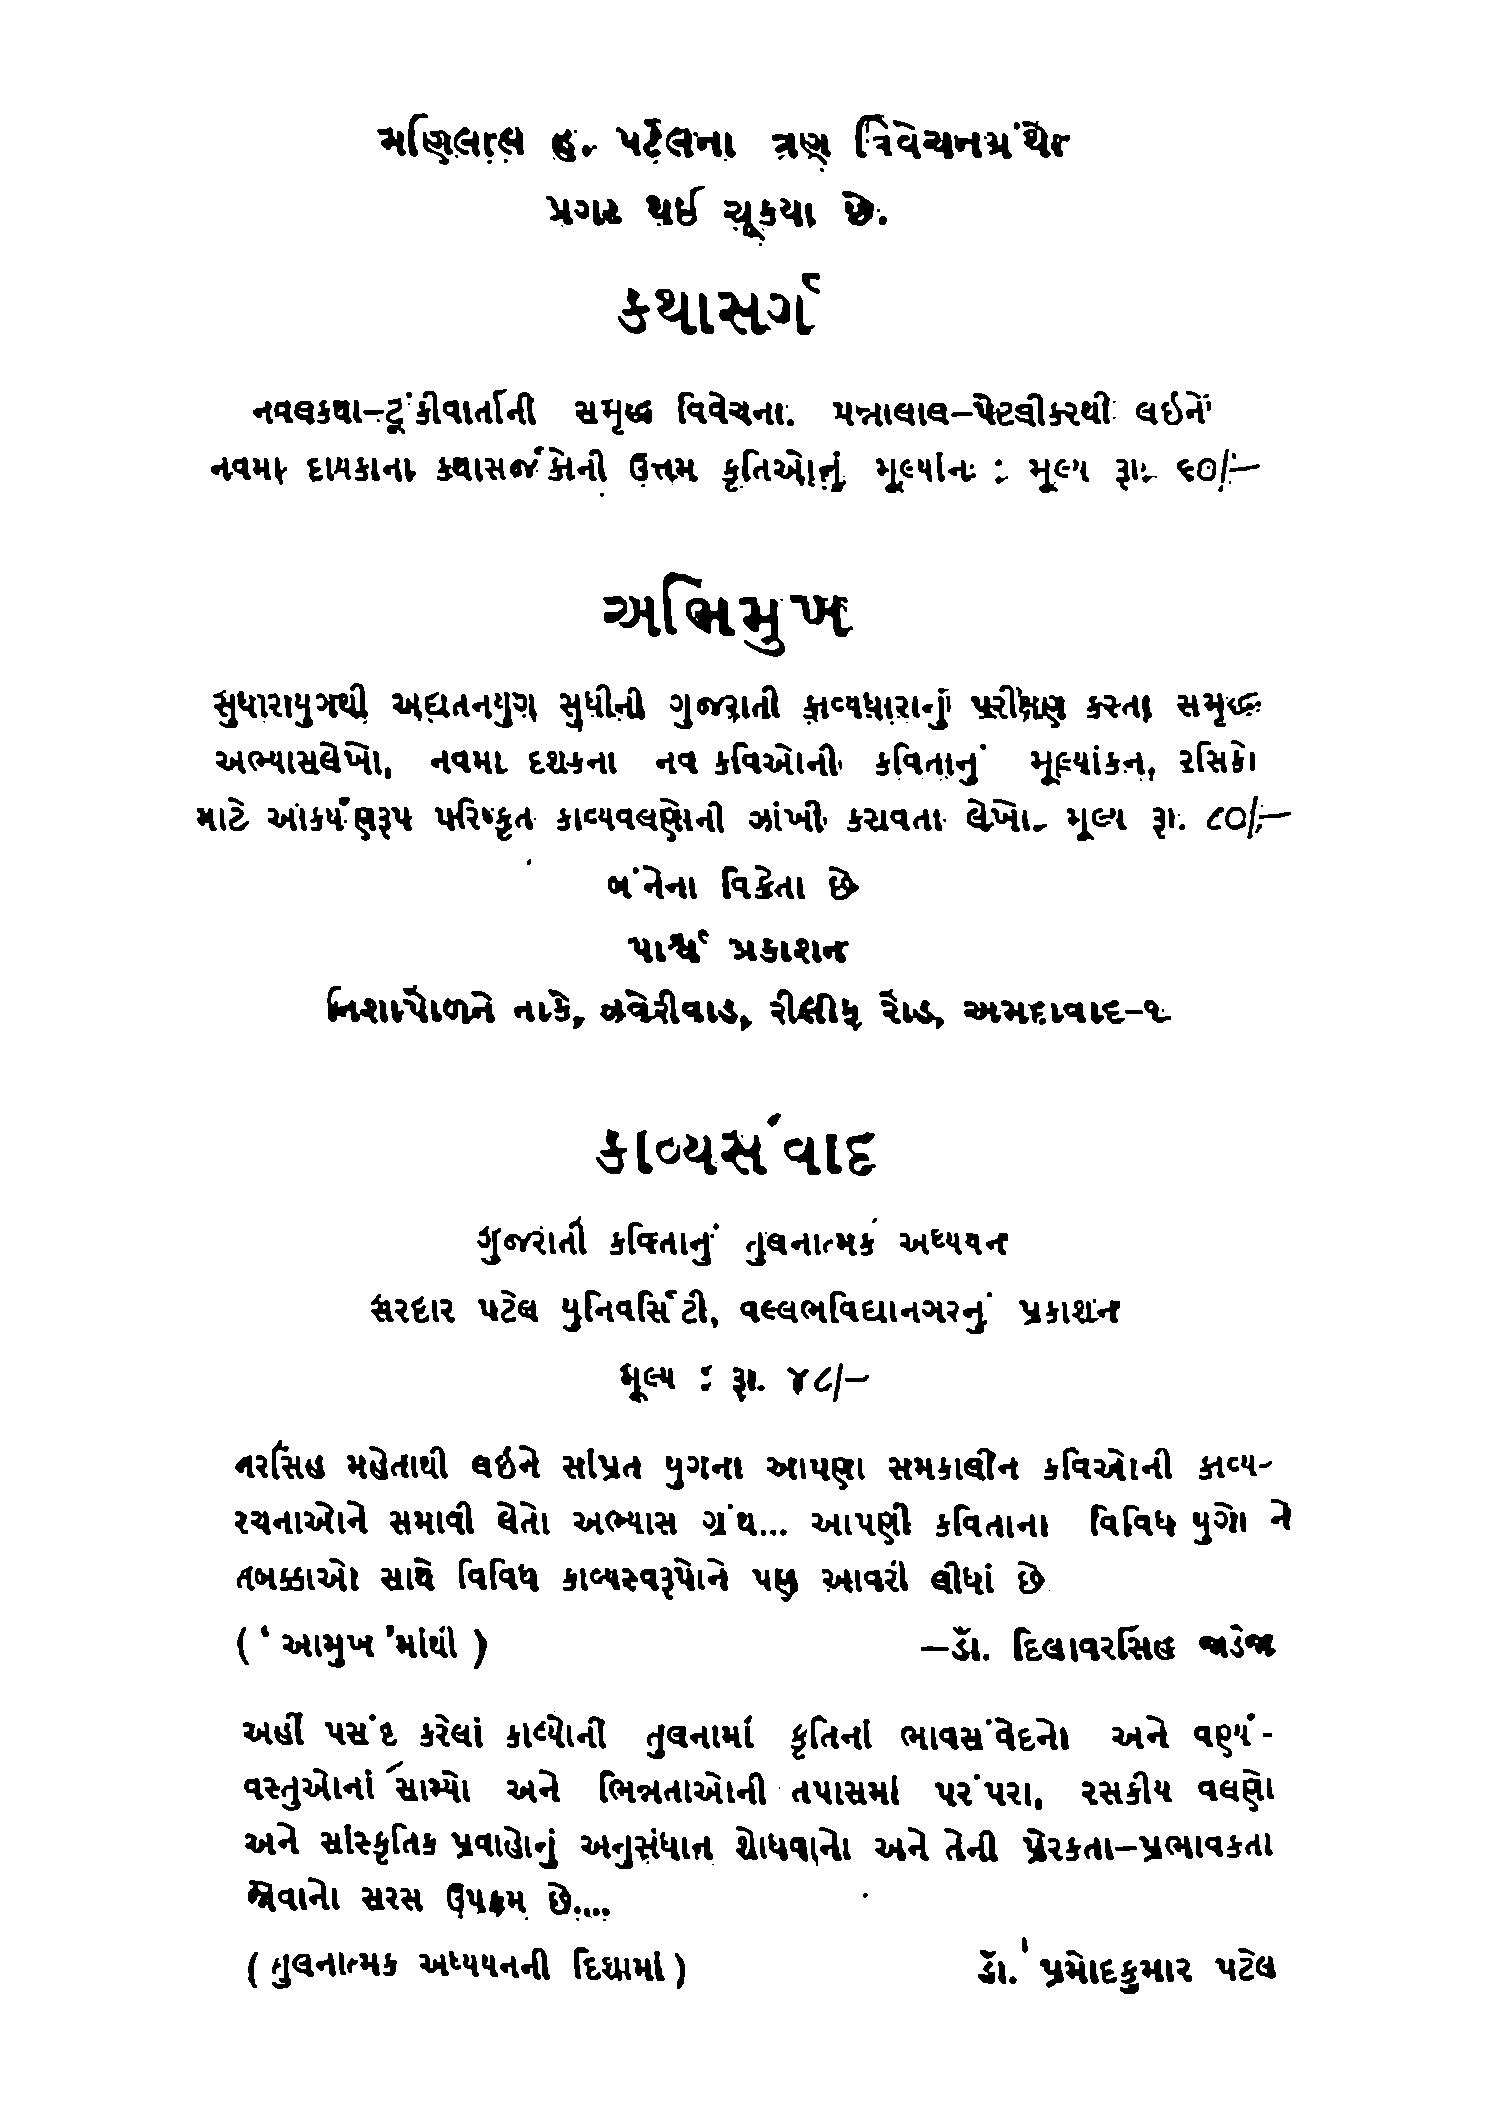 મણિલાલ હ. પટેલના ત્રણ વિવેચનગ્રંથો
પ્રગટ થઈ ચૂકયા છે.
કથાસર્ગ
નવલકથા–ટૂંકીવાર્તાની સમૃદ્ધ વિવેચના. પન્નાલાલ–પેટલીકરથી લઇને
નવમા દાયકાના કથાસર્જકોની ઉત્તમ કૃતિઓનું મૂલ્યાંન : મૂલ્ય રૂા. ૬૦/–
અભિમુખ
સુધારાયુગથી અદ્યતનયુગ સુધીની ગુજરાતી કાવ્યધારાનું પરીક્ષણ કરતા સમૃદ્ધ
અભ્યાસલેખો, નવમા દશકના નવ કવિઓની કવિતાનું મૂલ્યાંકન, રસિકો
માટે આકર્ષણરૂપ પરિષ્કૃત કાવ્યવલણોની ઝાંખી કરાવતા લેખો. મૂલ્ય રૂા. ૮૦/–
બંનેના વિક્રેતા છે
પાર્શ્વ પ્રકાશન
નિશાપોળને નાકે, ઝવેરીવાડ, રીલીફ રોડ, અમદાવાદ–૧
કાવ્યસંવાદ
ગુજરાતી કવિતાનું તુલનાત્મક અધ્યયન
સરદાર પટેલ યુનિવર્સિટી, વલ્લભવિદ્યાનગરનું પ્રકાશન
મૂલ્ય : રૂા. ૪૮/–
નરસિંહ મહેતાથી લઈને સાંપ્રત યુગના આપણા સમકાલીન કવિઓની કાવ્ય-
રચનાઓને સમાવી લેતો અભ્યાસ ગ્રંથ... આપણી કવિતાના વિવિધ યુગો ને
તબક્કાઓ સાથે વિવિધ કાવ્યસ્વરૂપોને પણ આવરી લીધાં છે
( ‘ આમુખ ’માંથી )
–ડૉ. દિલાવરસિંહ જાડેજા
અહીં પસંદ કરેલાં કાવ્યોની તુલનામાં કૃતિનાં ભાવસંવેદનો અને વર્ણ્ય-
વસ્તુઓનાં સામ્યો અને ભિન્નતાઓની તપાસમાં પરંપરા, રસકીય વલણો
અને સાંસ્કૃતિક પ્રવાહોનું અનુસંધાન શોધવાનો અને તેની પ્રેરકતા–પ્રભાવકતા
જોવાનો સરસ ઉપક્રમ છે....
( તુલનાત્મક અધ્યયનની દિશામાં )
ડૉ. પ્રમોદકુમાર પટેલ